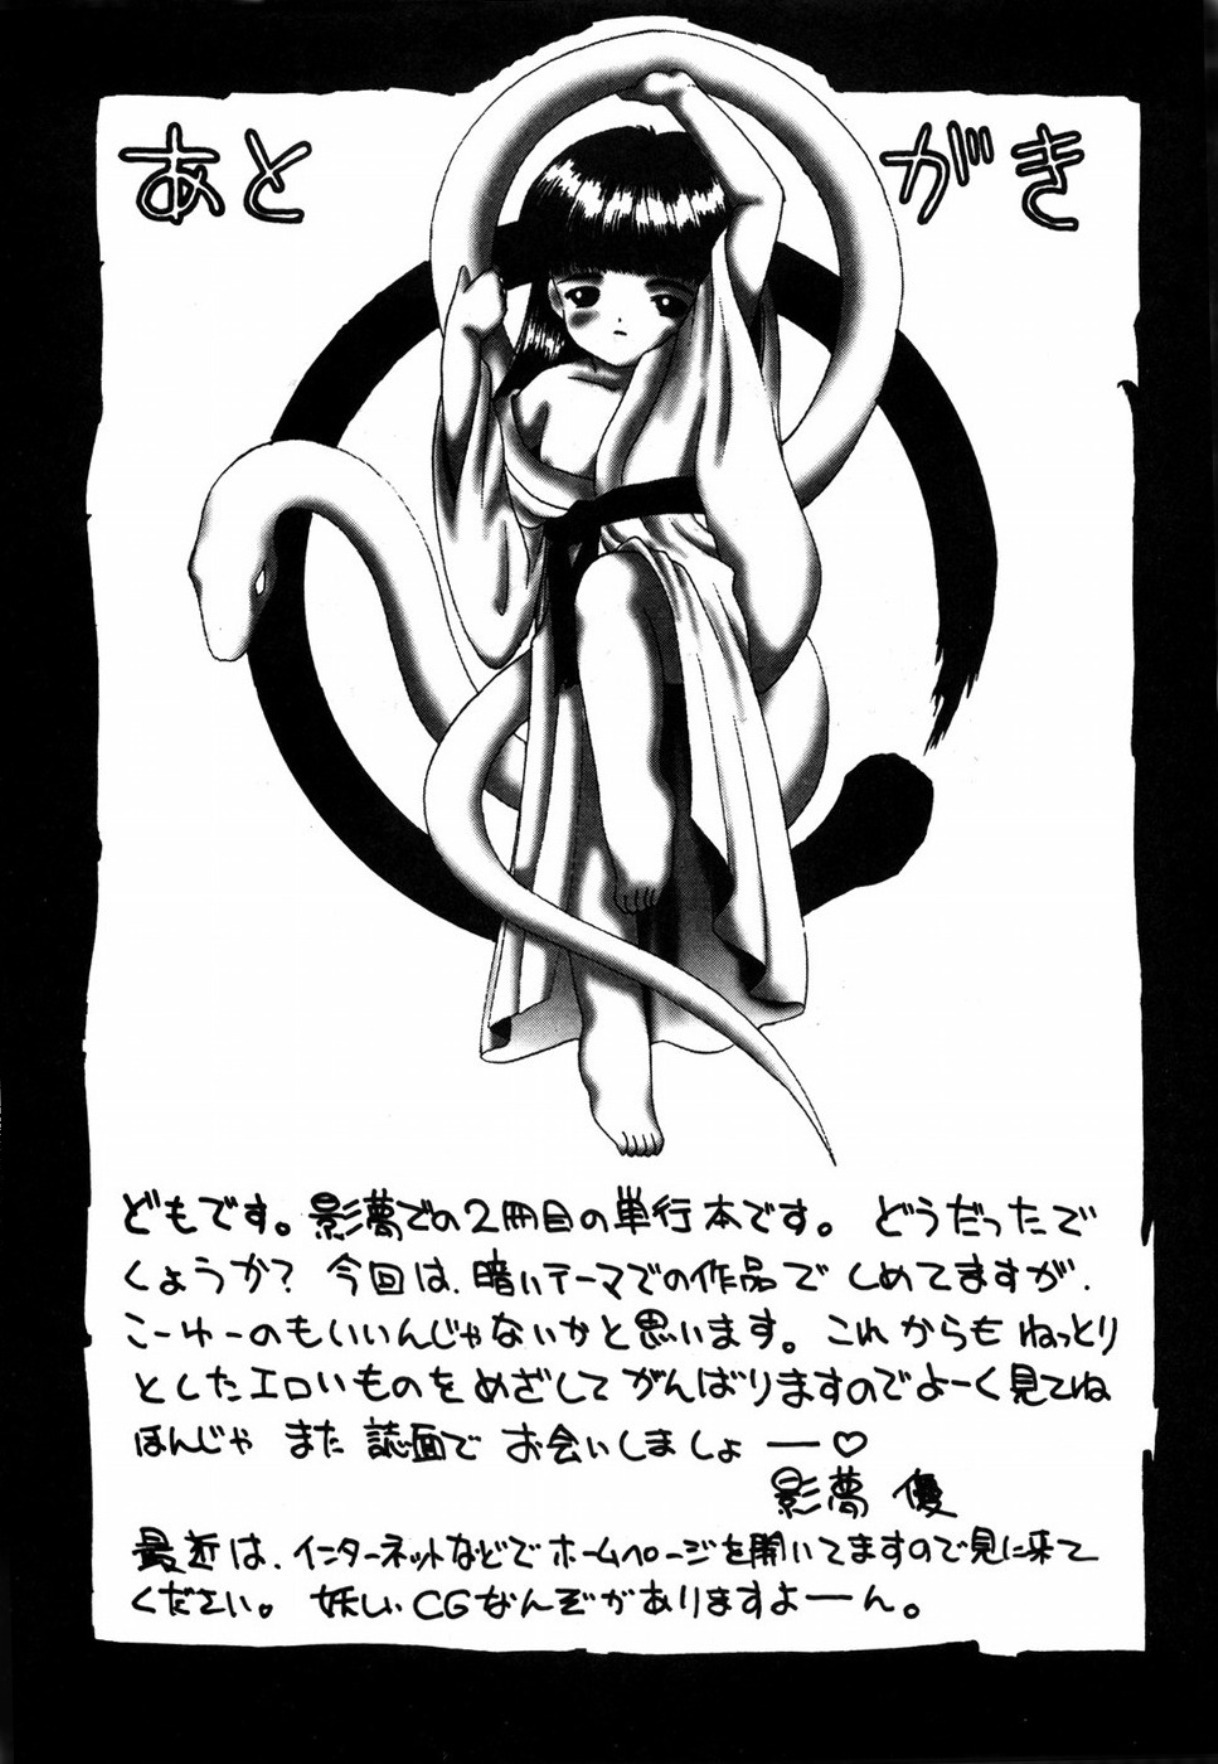 あとがき
どもです。影夢での2冊目の単行本です。 どうだったで
くょうか? 今回は、暗いテーマでの作品で しめてますが、
こーゆーのもいいんじゃないかと思います。これからも ねっとり
としたエロいものを めざして がんばりますのでよーく見てね
ほんじゃ また 誌面で お会いしましょ ー♡
影夢 優
最近は、インターネットなどでホームページを開いてますので見に来て
ください。 妖しいCGなんぞがありますよーん。